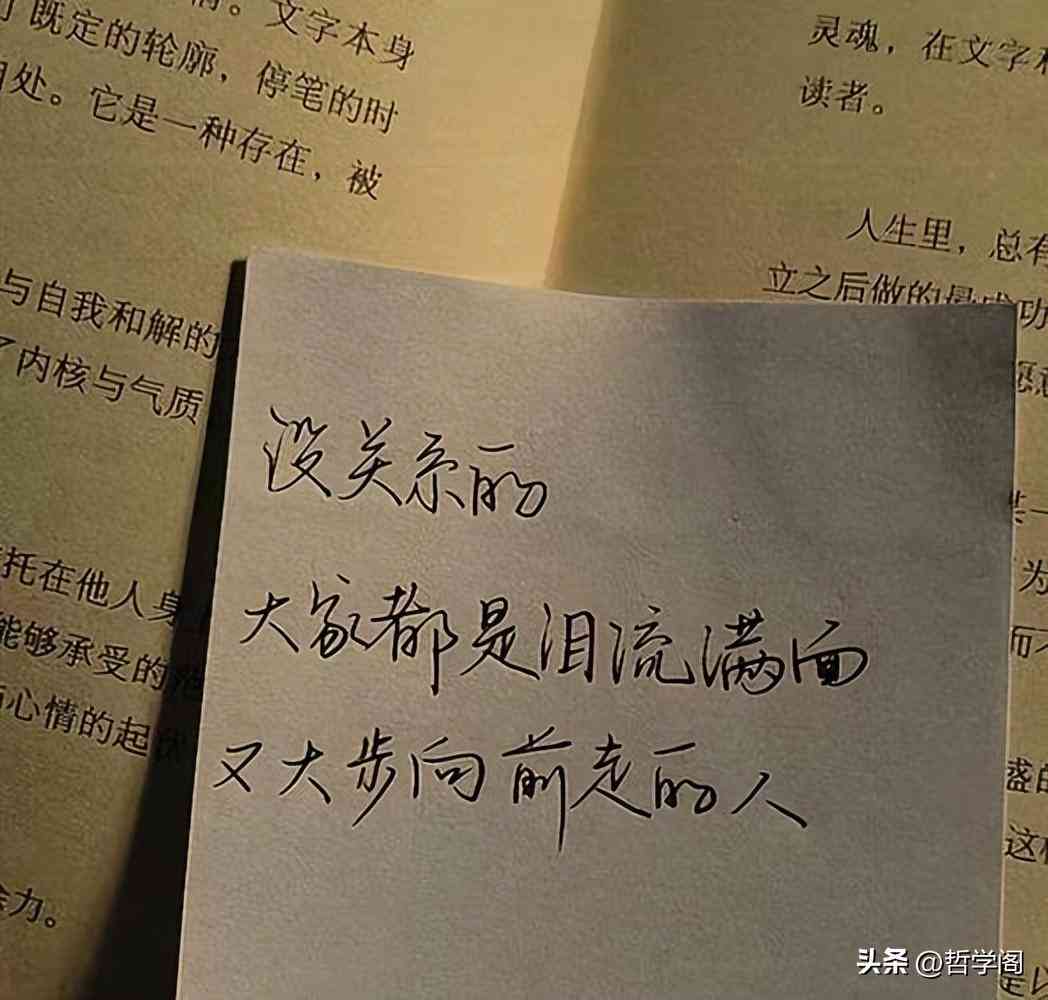 情。文字本身
既定的轮廓，停笔的时
处。它是一种存在，被
与自我和解的
了内核与气质
托在他人身
能够承受的
心情的起伏
余力。
灵魂，在文字和
读者。
人生里，总有
立之后做的最成功
愿意
某一
为
而不
盛的
这样
是以
没关系的
大家都是泪流满面
又大步向前走的人
头条 @哲学阁